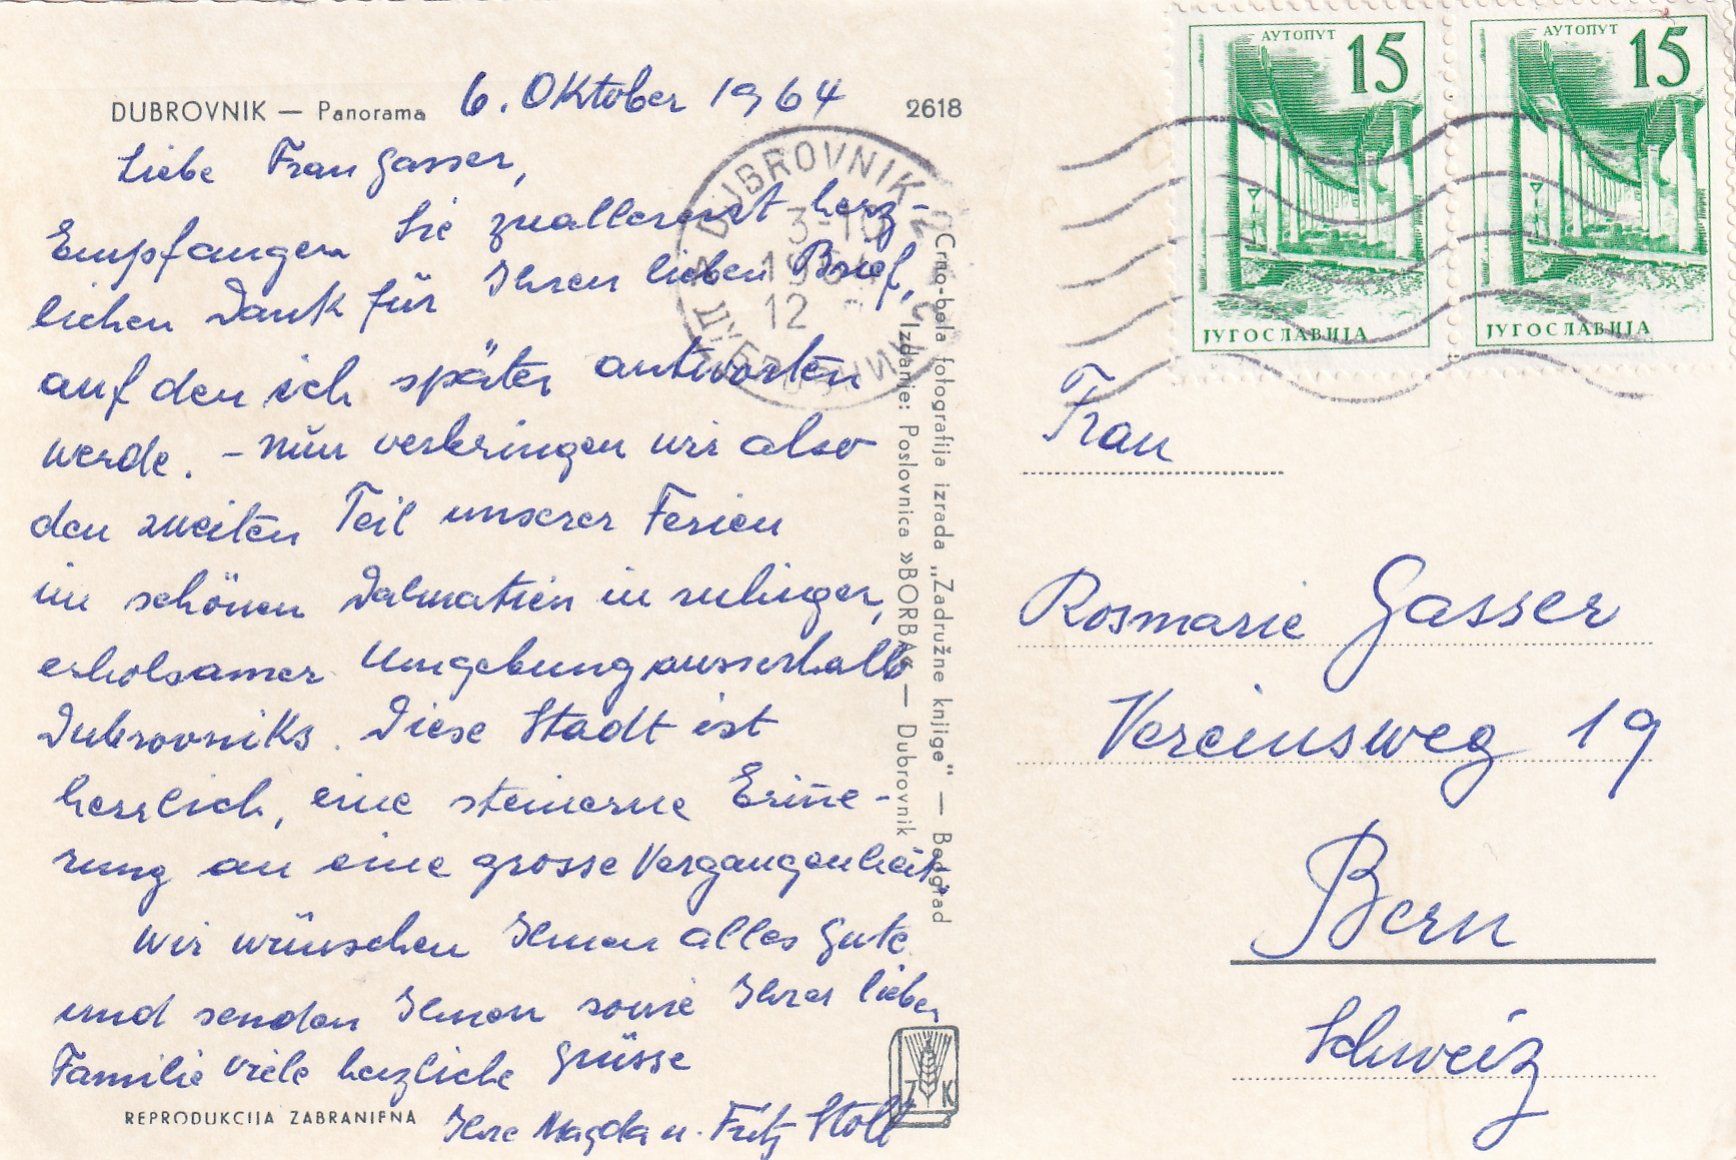 DUBROVNIK — Panorama
6. Oktober 1964
2618
Liebe Frau Gasser,
Empfangen Sie zuallererst herz-
lichen Dank für Ihren lieben Brief,
auf den ich später antworten
werde. – Nun verbringen wir also
den zweiten Teil unserer Ferien
im schönen Dalmatien in ruhiger,
erholsamer Umgebung ausserhalb
Dubrovniks. Diese Stadt ist
herrlich, eine steinerne Erin̄e-
rung an eine grosse Vergangenheit.
Wir wünschen Ihnen alles Gute
und senden Ihnen sowie Ihrer lieben
Familie viele herzliche Grüsse
Ihre Magda u. Fritz Stoll
REPRODUKCIJA ZABRANJENA
Crno-bela fotografija izrada „Zadružne knjige" — Beograd
Izdanje: Poslovnica »BORBA« — Dubrovnik
DUBROVNIK 2
12
ZK
АУТОПУТ 15
ЈУГОСЛАВИЈА
АУТОПУТ 15
ЈУГОСЛАВИЈА
Frau
Rosmarie Gasser
Vereinsweg 19
Bern
Schweiz